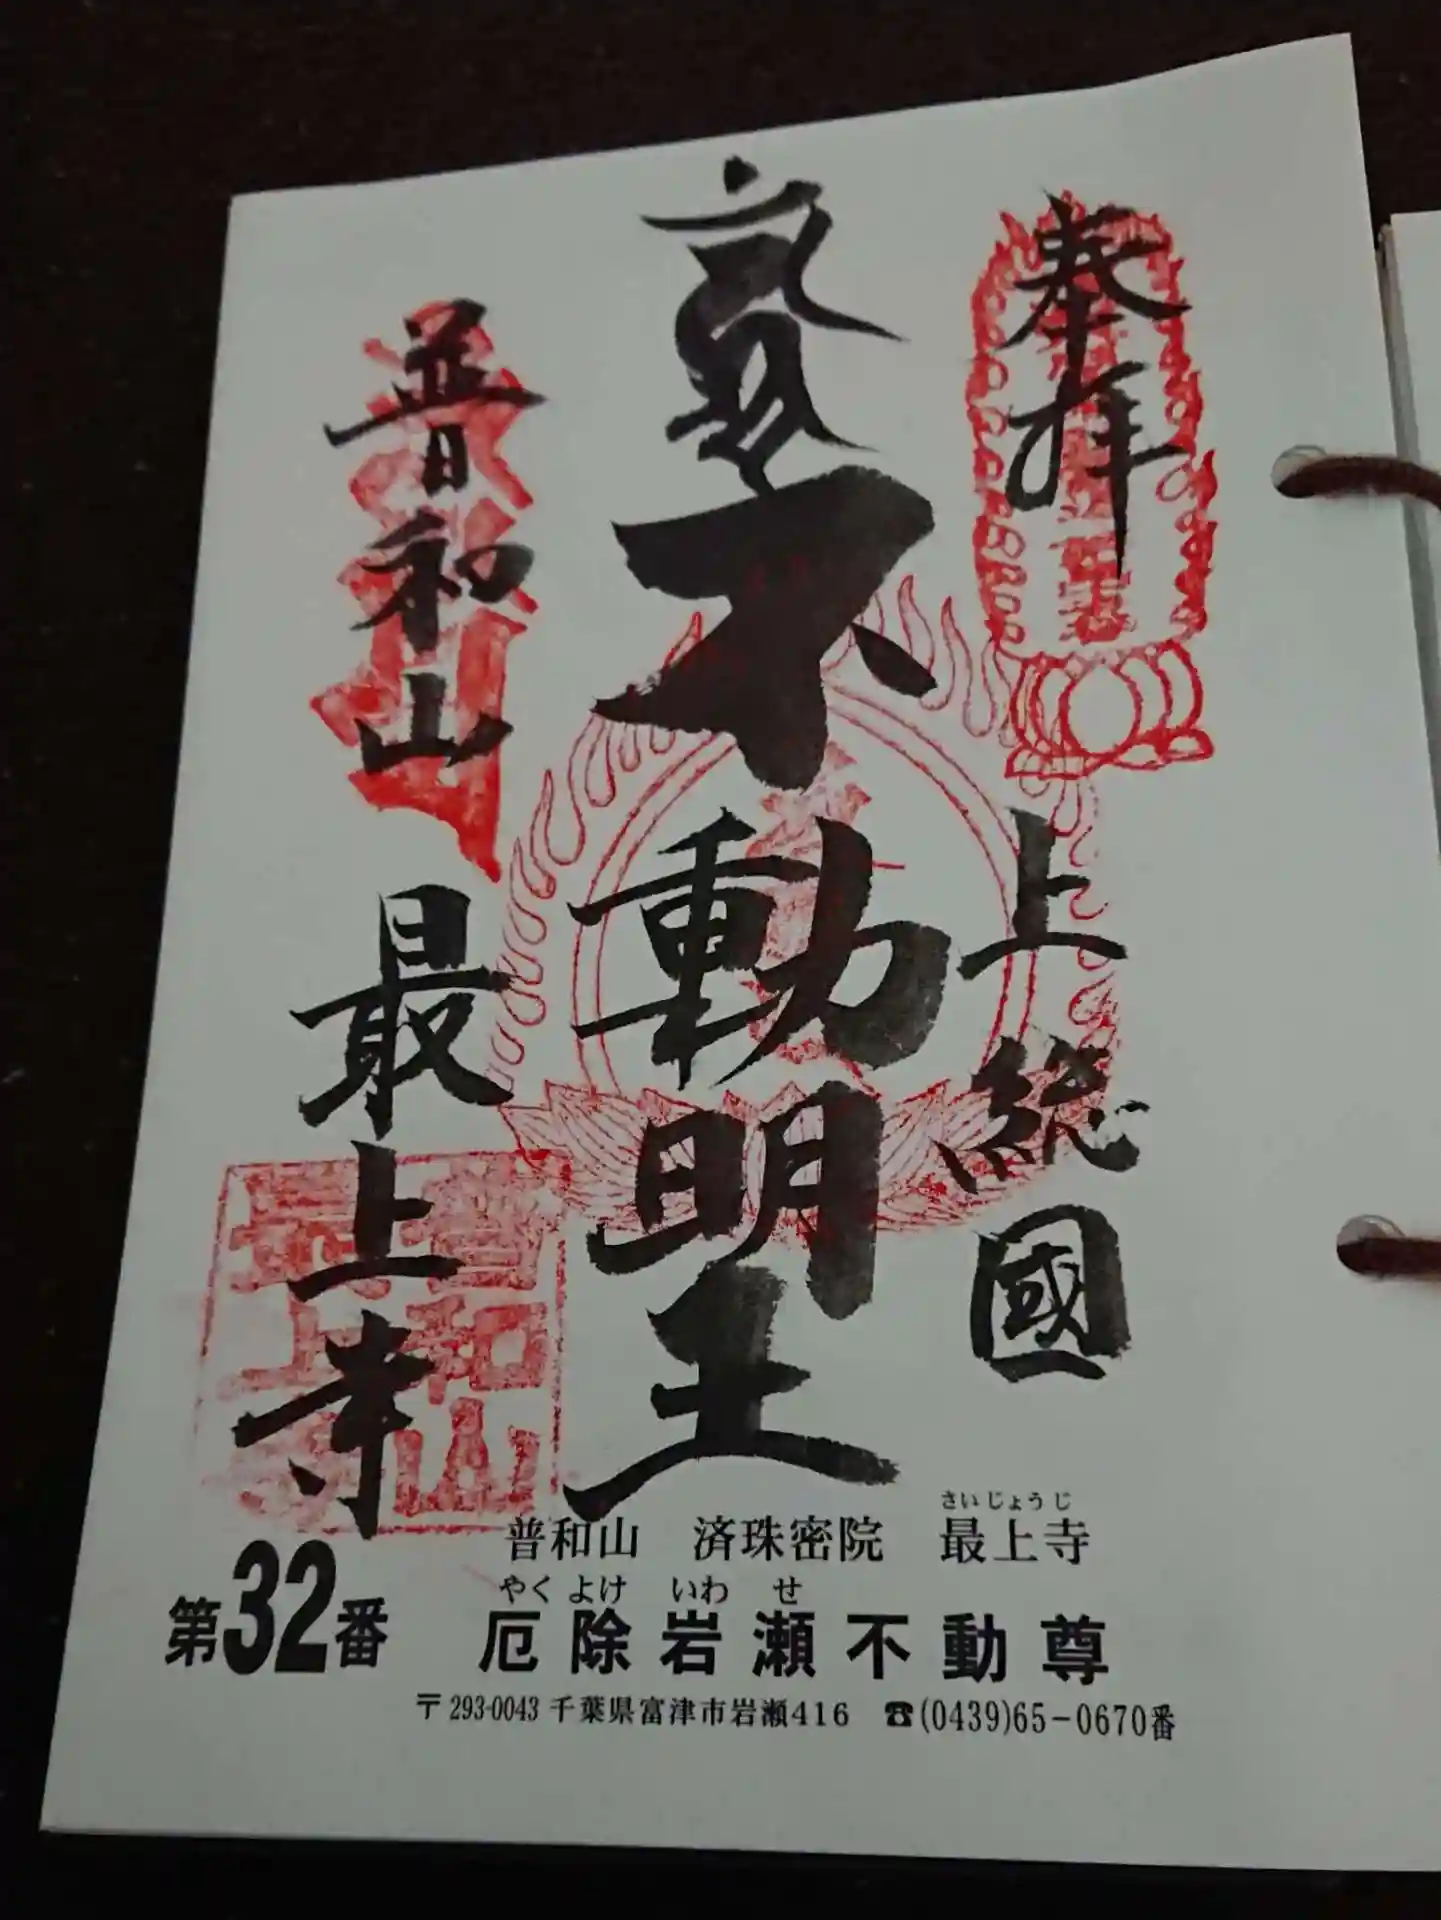 奉拝
上総國
不動明王
普和山
最上寺
さいじょうじ
普和山 済珠密院 最上寺
やくよけ いわ せ
第32番 厄除岩瀬不動尊
〒293-0043 千葉県富津市岩瀬416 ☎(0439)65-0670番